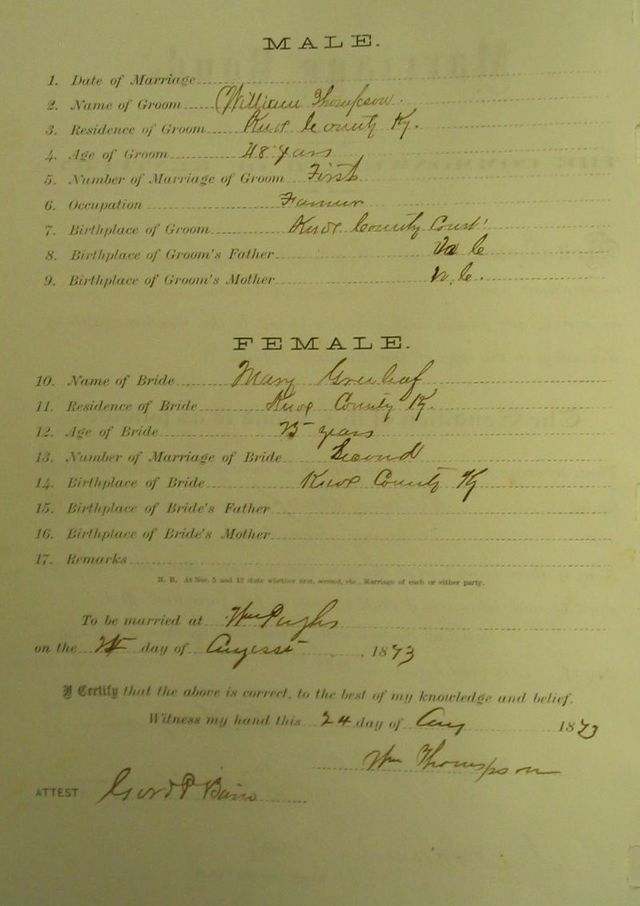 MALE.
1. Date of Marriage
2. Name of Groom William Thompson.
3. Residence of Groom Knox County Ky.
4. Age of Groom 48 years
5. Number of Marriage of Groom First
6. Occupation Farmer
7. Birthplace of Groom Knox County
8. Birthplace of Groom's Father
9. Birthplace of Groom's Mother N.C.
FEMALE.
10. Name of Bride Mary Greenleaf
11. Residence of Bride Knox County Ky.
12. Age of Bride years
13. Number of Marriage of Bride Second
14. Birthplace of Bride Knox County Ky
15. Birthplace of Bride's Father
16. Birthplace of Bride's Mother
17. Remarks
N. B. At Nos. 5 and 13 state whether first, second, etc., Marriage of each or either party.
To be married at Wm
on the day of August 1873
I Certify that the above is correct, to the best of my knowledge and belief.
Witness my hand this 24 day of Aug 1873
Wm Thompson
ATTEST